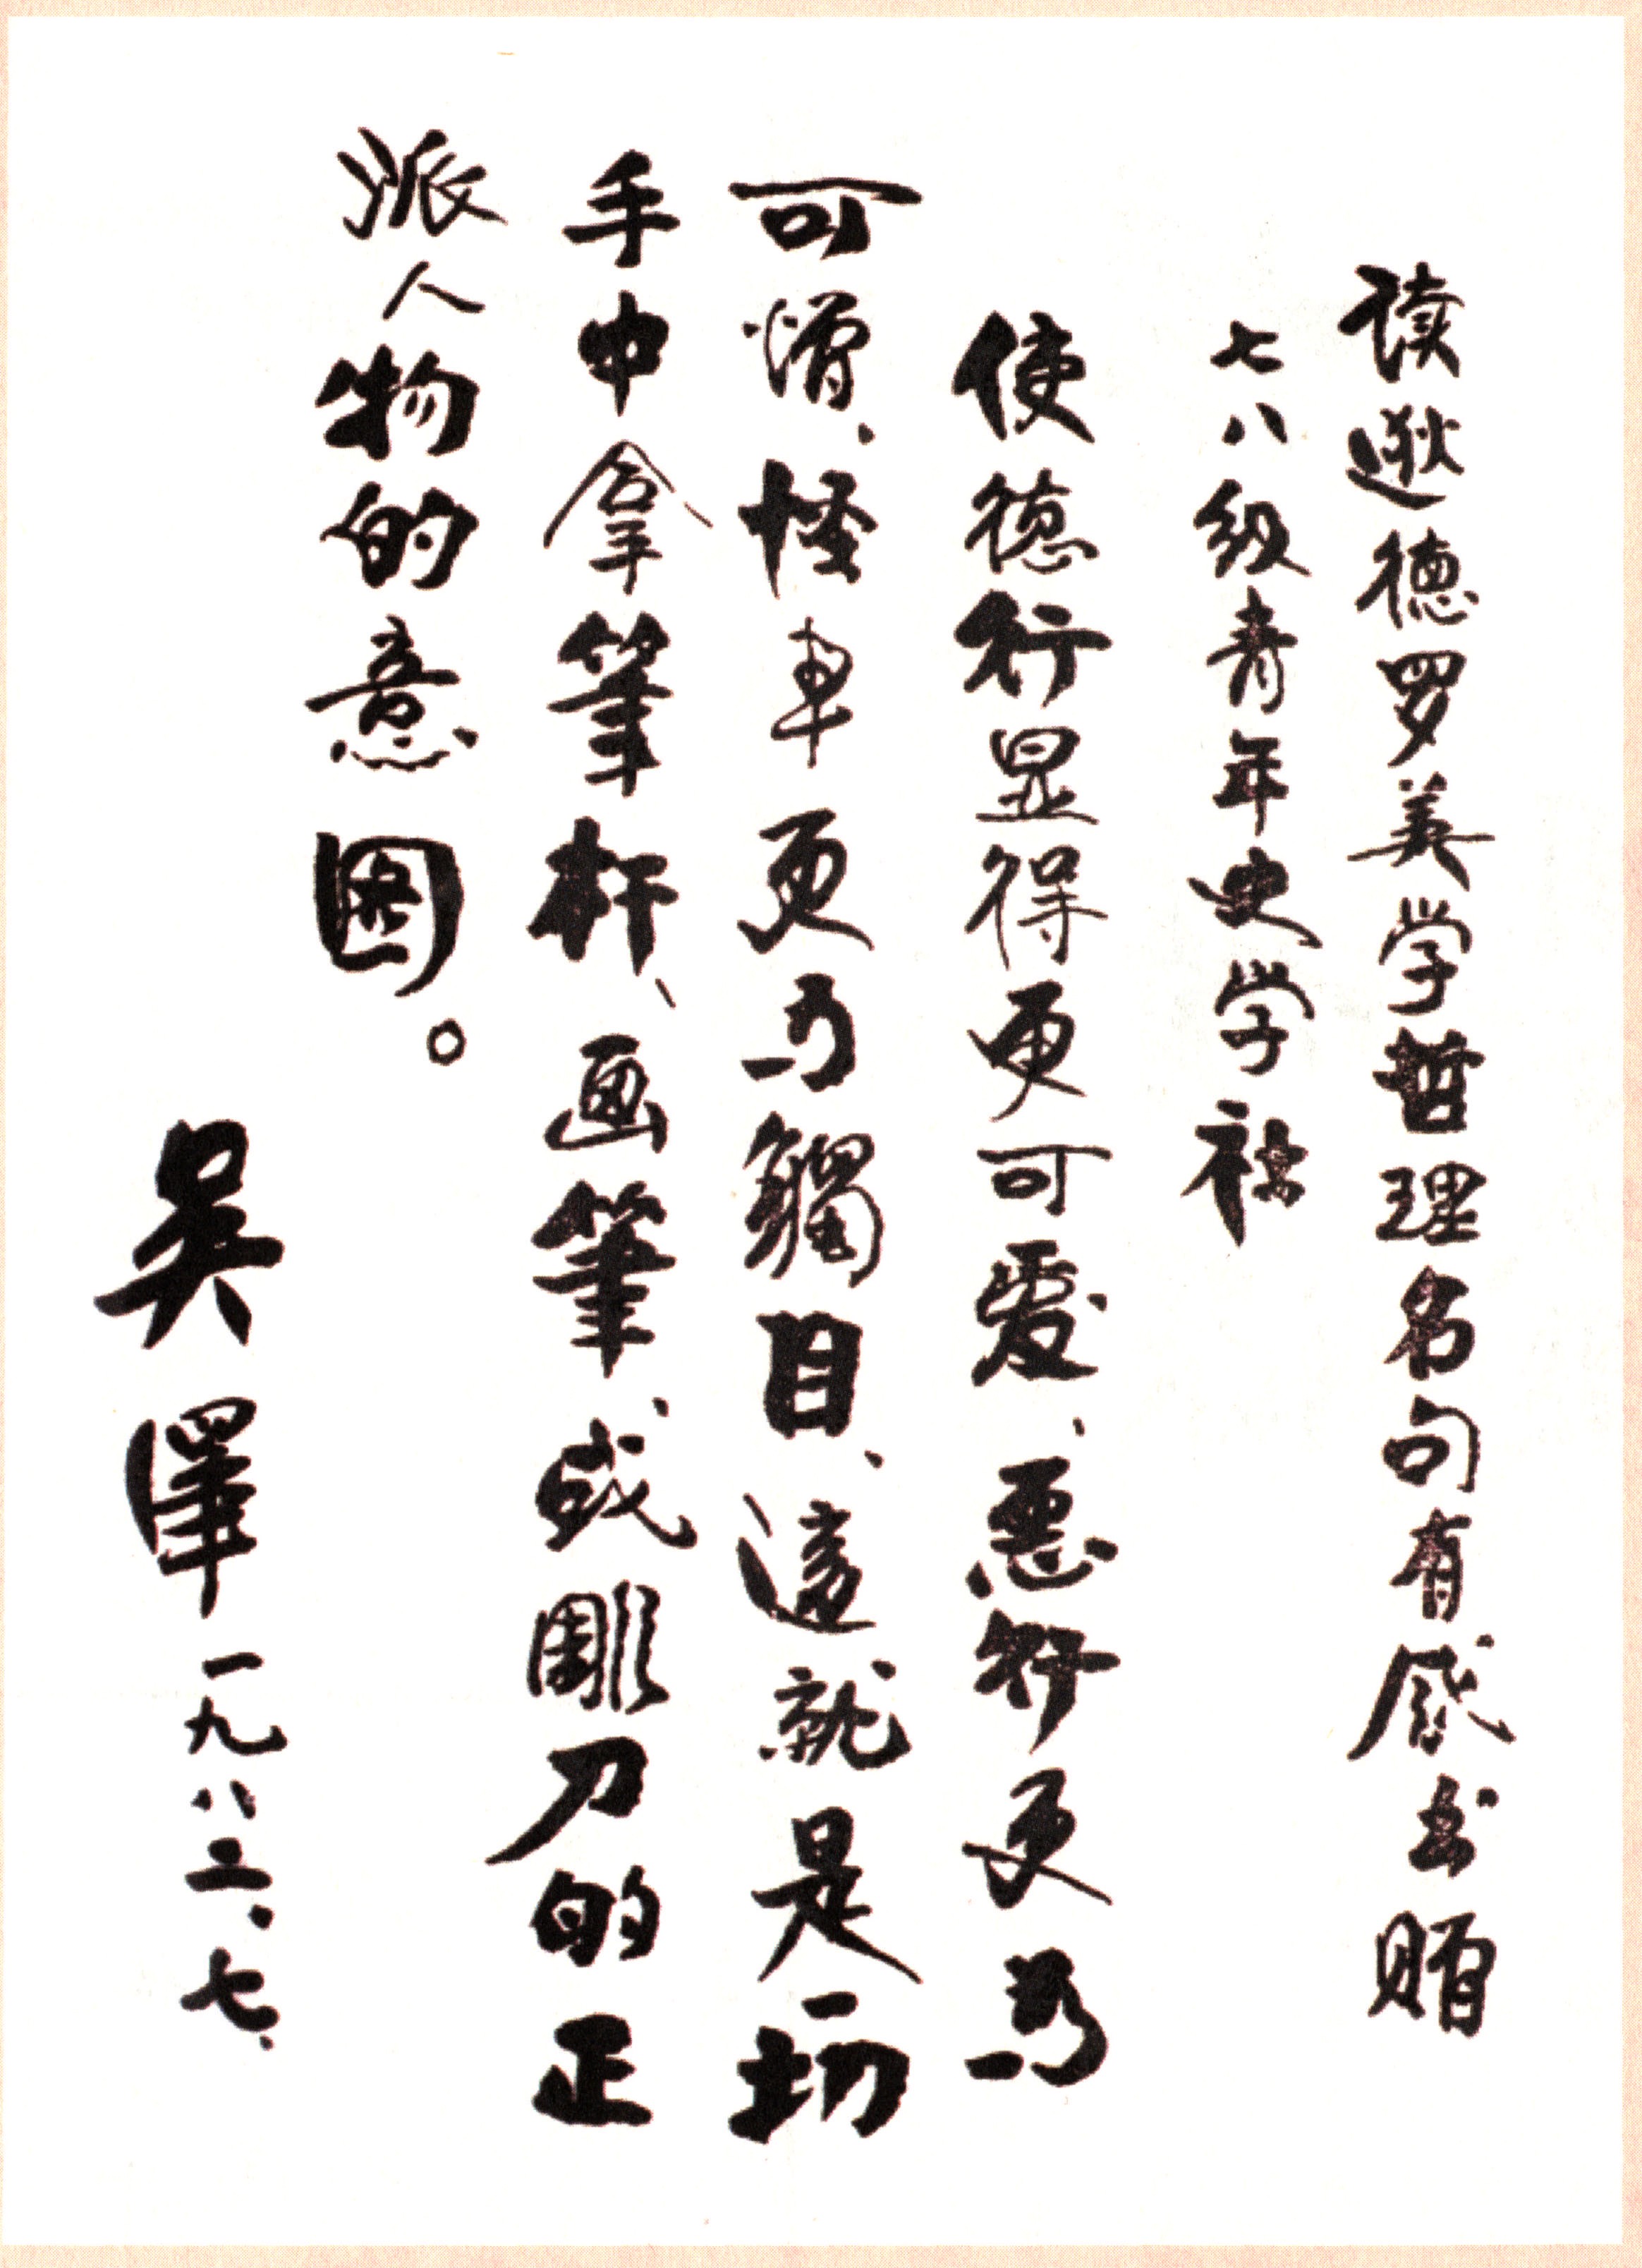 读逖德罗美学哲理名句有感书赠
七八级青年史学社
使德行显得更可愛、恶行更为
可憎、怪事更为觸目、這就是一切
手中拿筆杆、画筆、或雕刀的正
派人物的意图。
吴澤 一九八二、七、